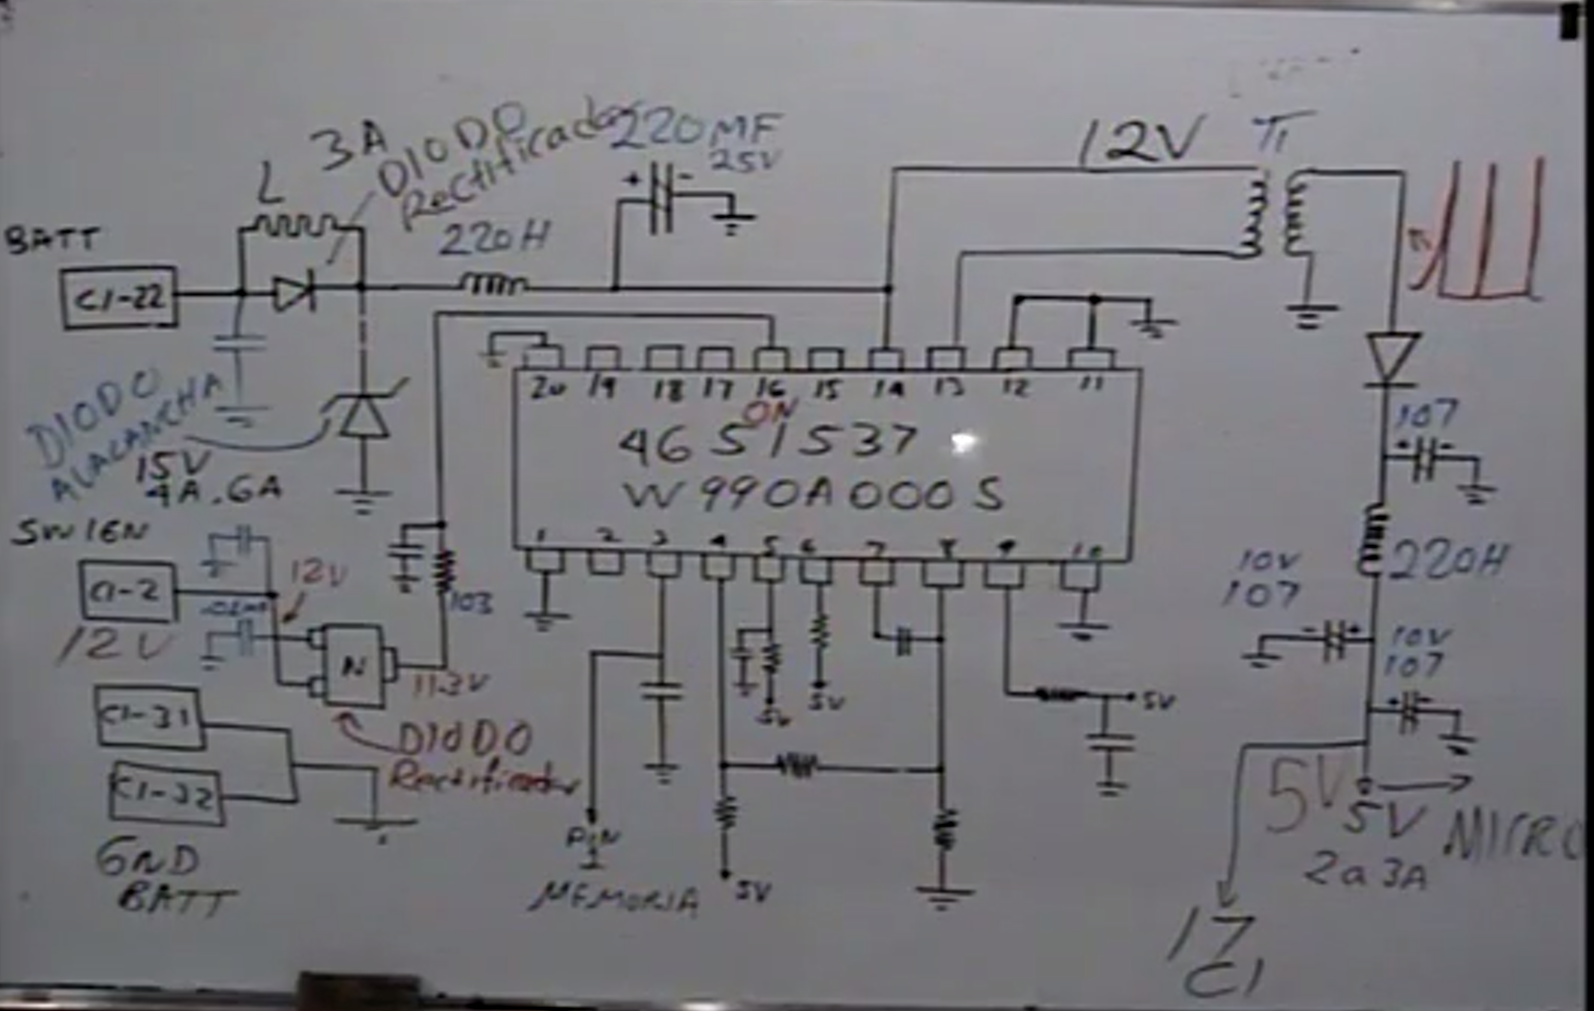 3A
DIODO
Rectificador
L
220MF
25V
12V
T1
BATT
C1-22
220H
20 19 18 17 16 15 14 13 12 11
ON
4651537
W990A000S
1 2 3 4 5 6 7 8 9 10
DIODO
ALACANCHA
15V
4A.6A
SW IGN
C1-2
12V
12V
103
N
11.3V
DIODO
Rectificador
C1-31
C1-32
GND
BATT
PIN
1
MEMORIA
5V
5V
5V
5V
107
220H
10V
107
10V
107
5V
5V
MICRO
2a3A
17
C1